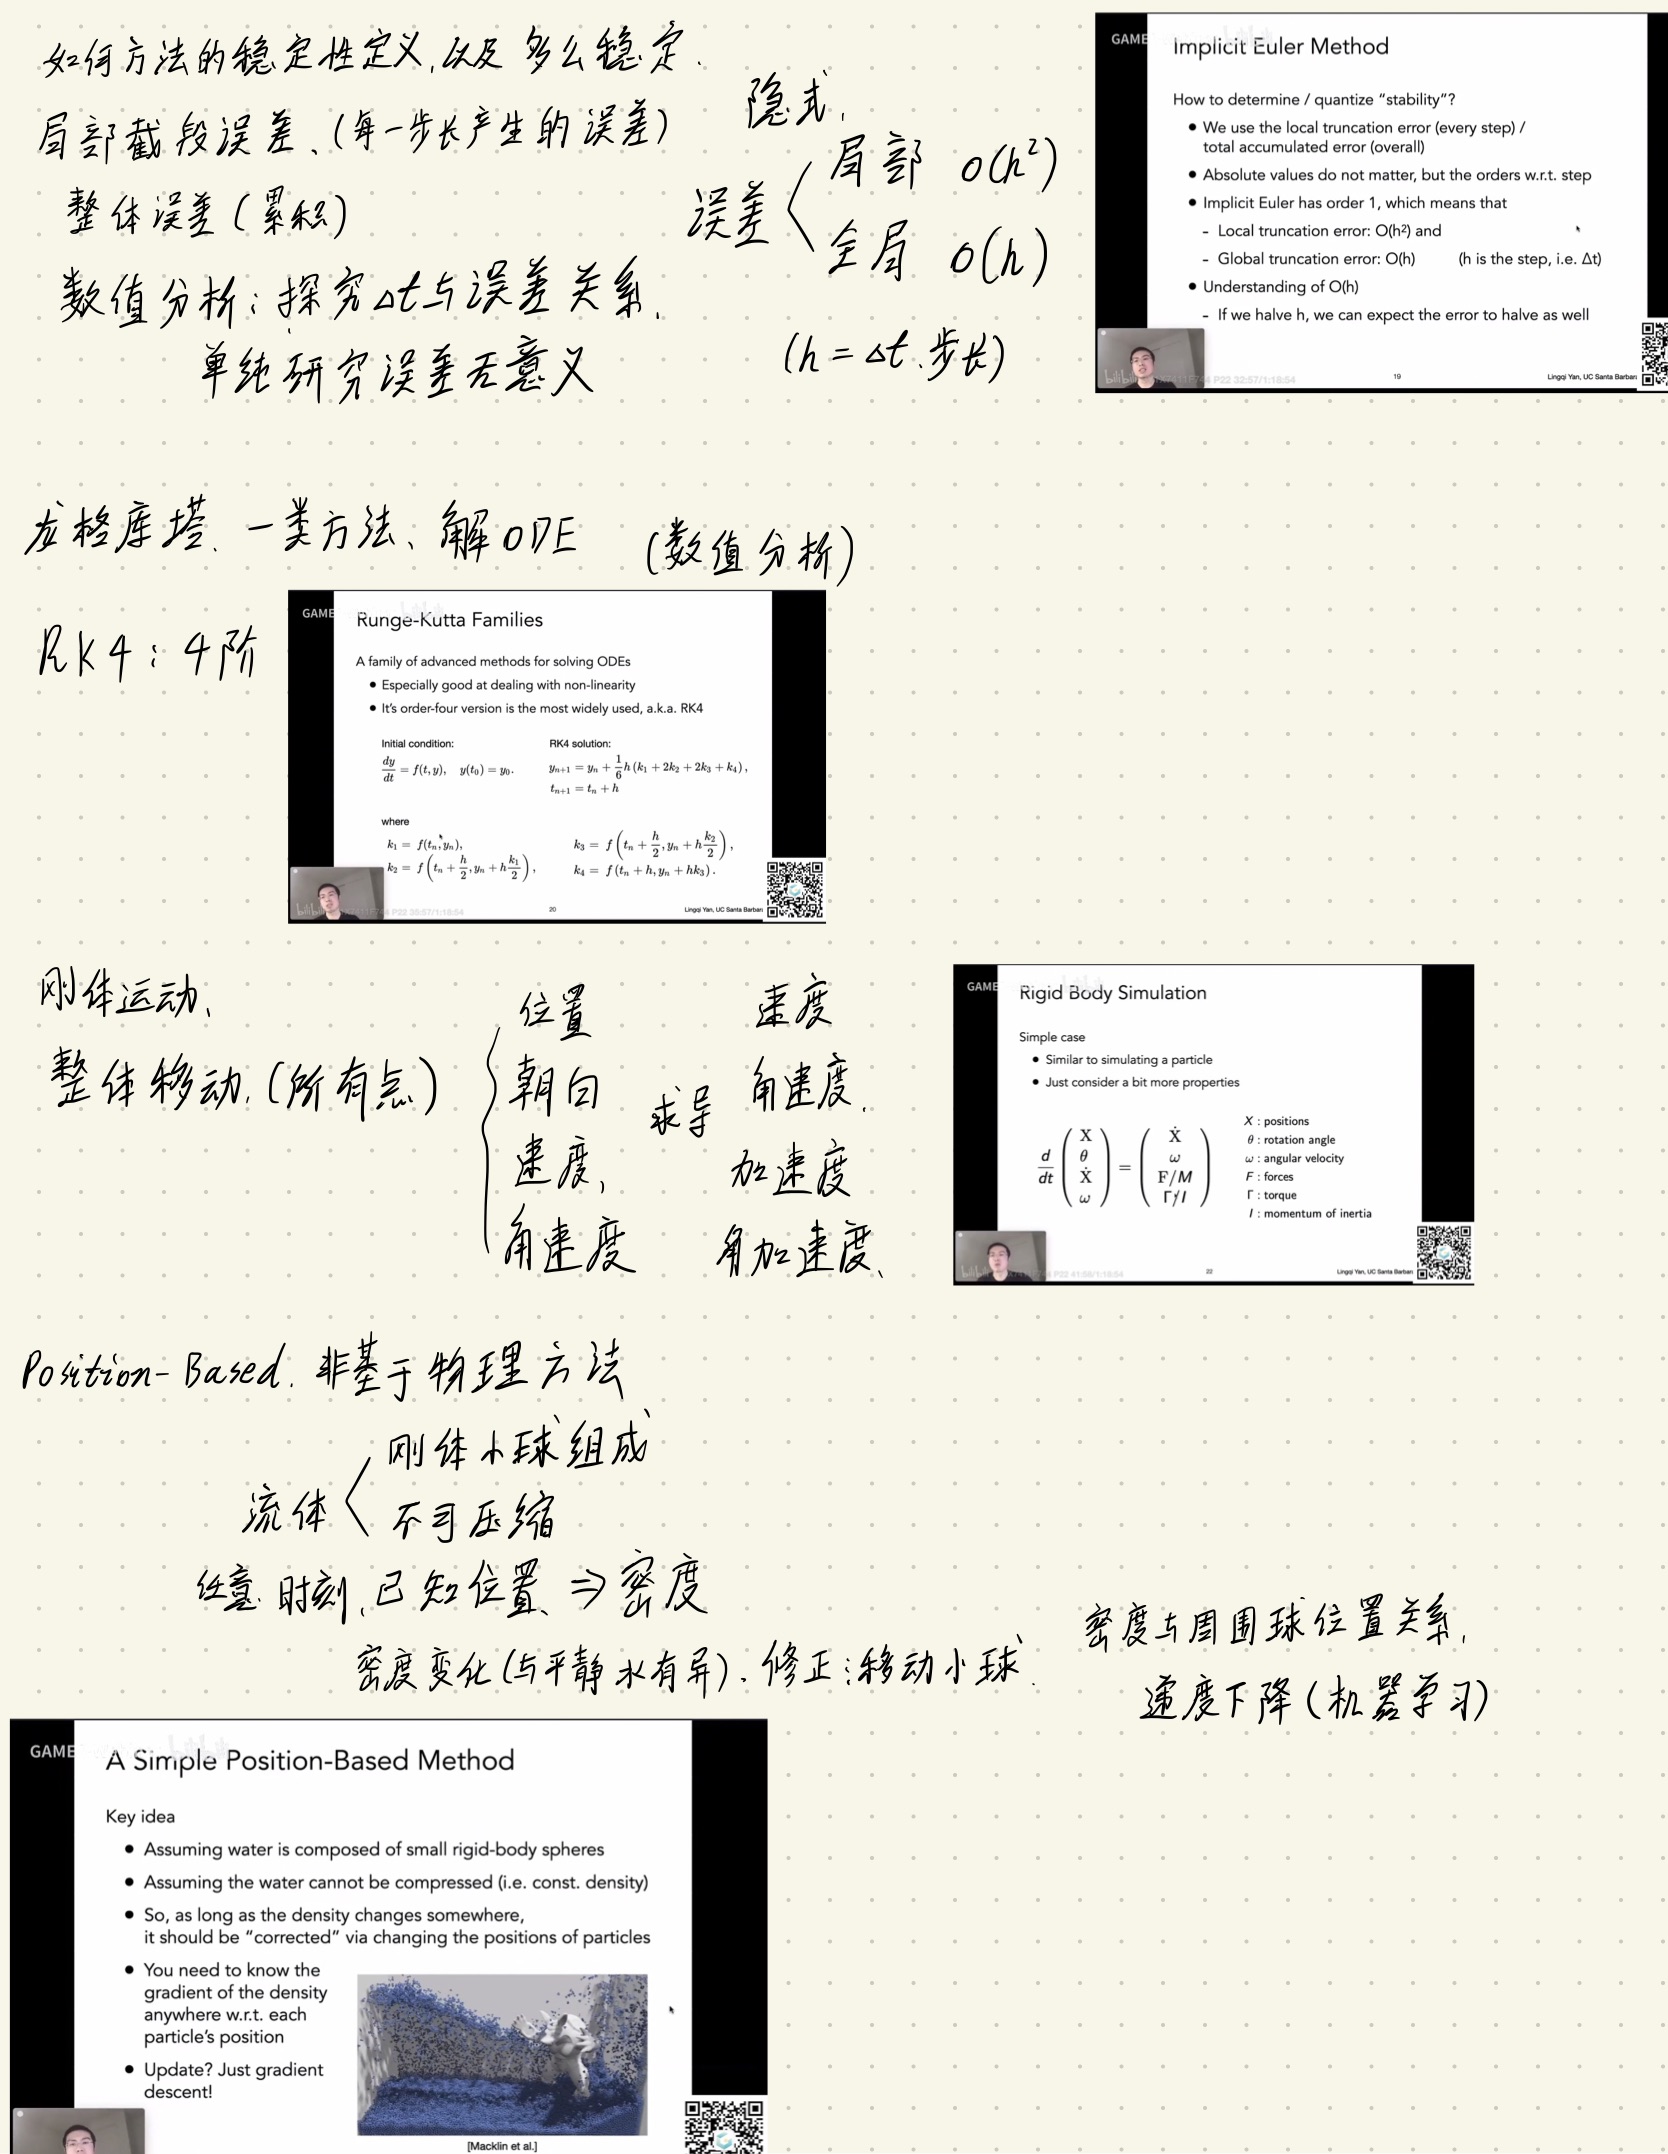 如何方法的稳定性定义,以及多么稳定.
局部截段误差、(每一步长产生的误差)
整体误差(累积)
数值分析:探究Δt与误差关系.
单纯研究误差无意义
隐式,
误差
局部 O(h²)
全局 O(h)
(h=Δt.步长)
GAME
Implicit Euler Method
How to determine / quantize “stability”?
• We use the local truncation error (every step) /
total accumulated error (overall)
• Absolute values do not matter, but the orders w.r.t. step
• Implicit Euler has order 1, which means that
- Local truncation error: O(h²) and
- Global truncation error: O(h) (h is the step, i.e. Δt)
• Understanding of O(h)
- If we halve h, we can expect the error to halve as well
P22 32:57/1:18:54
19
Lingqi Yan, UC Santa Barbar
龙格库塔. 一类方法、解ODE (数值分析)
RK4:4阶
GAME
Runge-Kutta Families
A family of advanced methods for solving ODEs
• Especially good at dealing with non-linearity
• It’s order-four version is the most widely used, a.k.a. RK4
Initial condition:
dy/dt = f(t, y), y(t₀) = y₀.
RK4 solution:
yₙ₊₁ = yₙ + 1/6 h (k₁ + 2k₂ + 2k₃ + k₄),
tₙ₊₁ = tₙ + h
where
k₁ = f(tₙ, yₙ),
k₂ = f(tₙ + h/2, yₙ + h k₁/2),
k₃ = f(tₙ + h/2, yₙ + h k₂/2),
k₄ = f(tₙ + h, yₙ + hk₃).
P22 35:57/1:18:54
20
Lingqi Yan, UC Santa Barbar
刚体运动、
整体移动.(所有点)
位置 速度
朝向 求导 角速度.
速度, 加速度
角速度 角加速度、
GAME
Rigid Body Simulation
Simple case
• Similar to simulating a particle
• Just consider a bit more properties
d/dt (X θ Ẋ ω) = (Ẋ ω F/M Γ/I)
X : positions
θ : rotation angle
ω : angular velocity
F : forces
Γ : torque
I : momentum of inertia
P22 41:56/1:18:54
22
Lingqi Yan, UC Santa Barbar
Position-Based. 非基于物理方法
流体
刚体小球组成
不可压缩
任意时刻,已知位置、⇒密度
密度变化(与平静水有异).修正:移动小球.
密度与周围球位置关系,
速度下降(机器学习)
GAME
A Simple Position-Based Method
Key idea
• Assuming water is composed of small rigid-body spheres
• Assuming the water cannot be compressed (i.e. const. density)
• So, as long as the density changes somewhere,
it should be “corrected” via changing the positions of particles
• You need to know the
gradient of the density
anywhere w.r.t. each
particle’s position
• Update? Just gradient
descent!
[Macklin et al.]